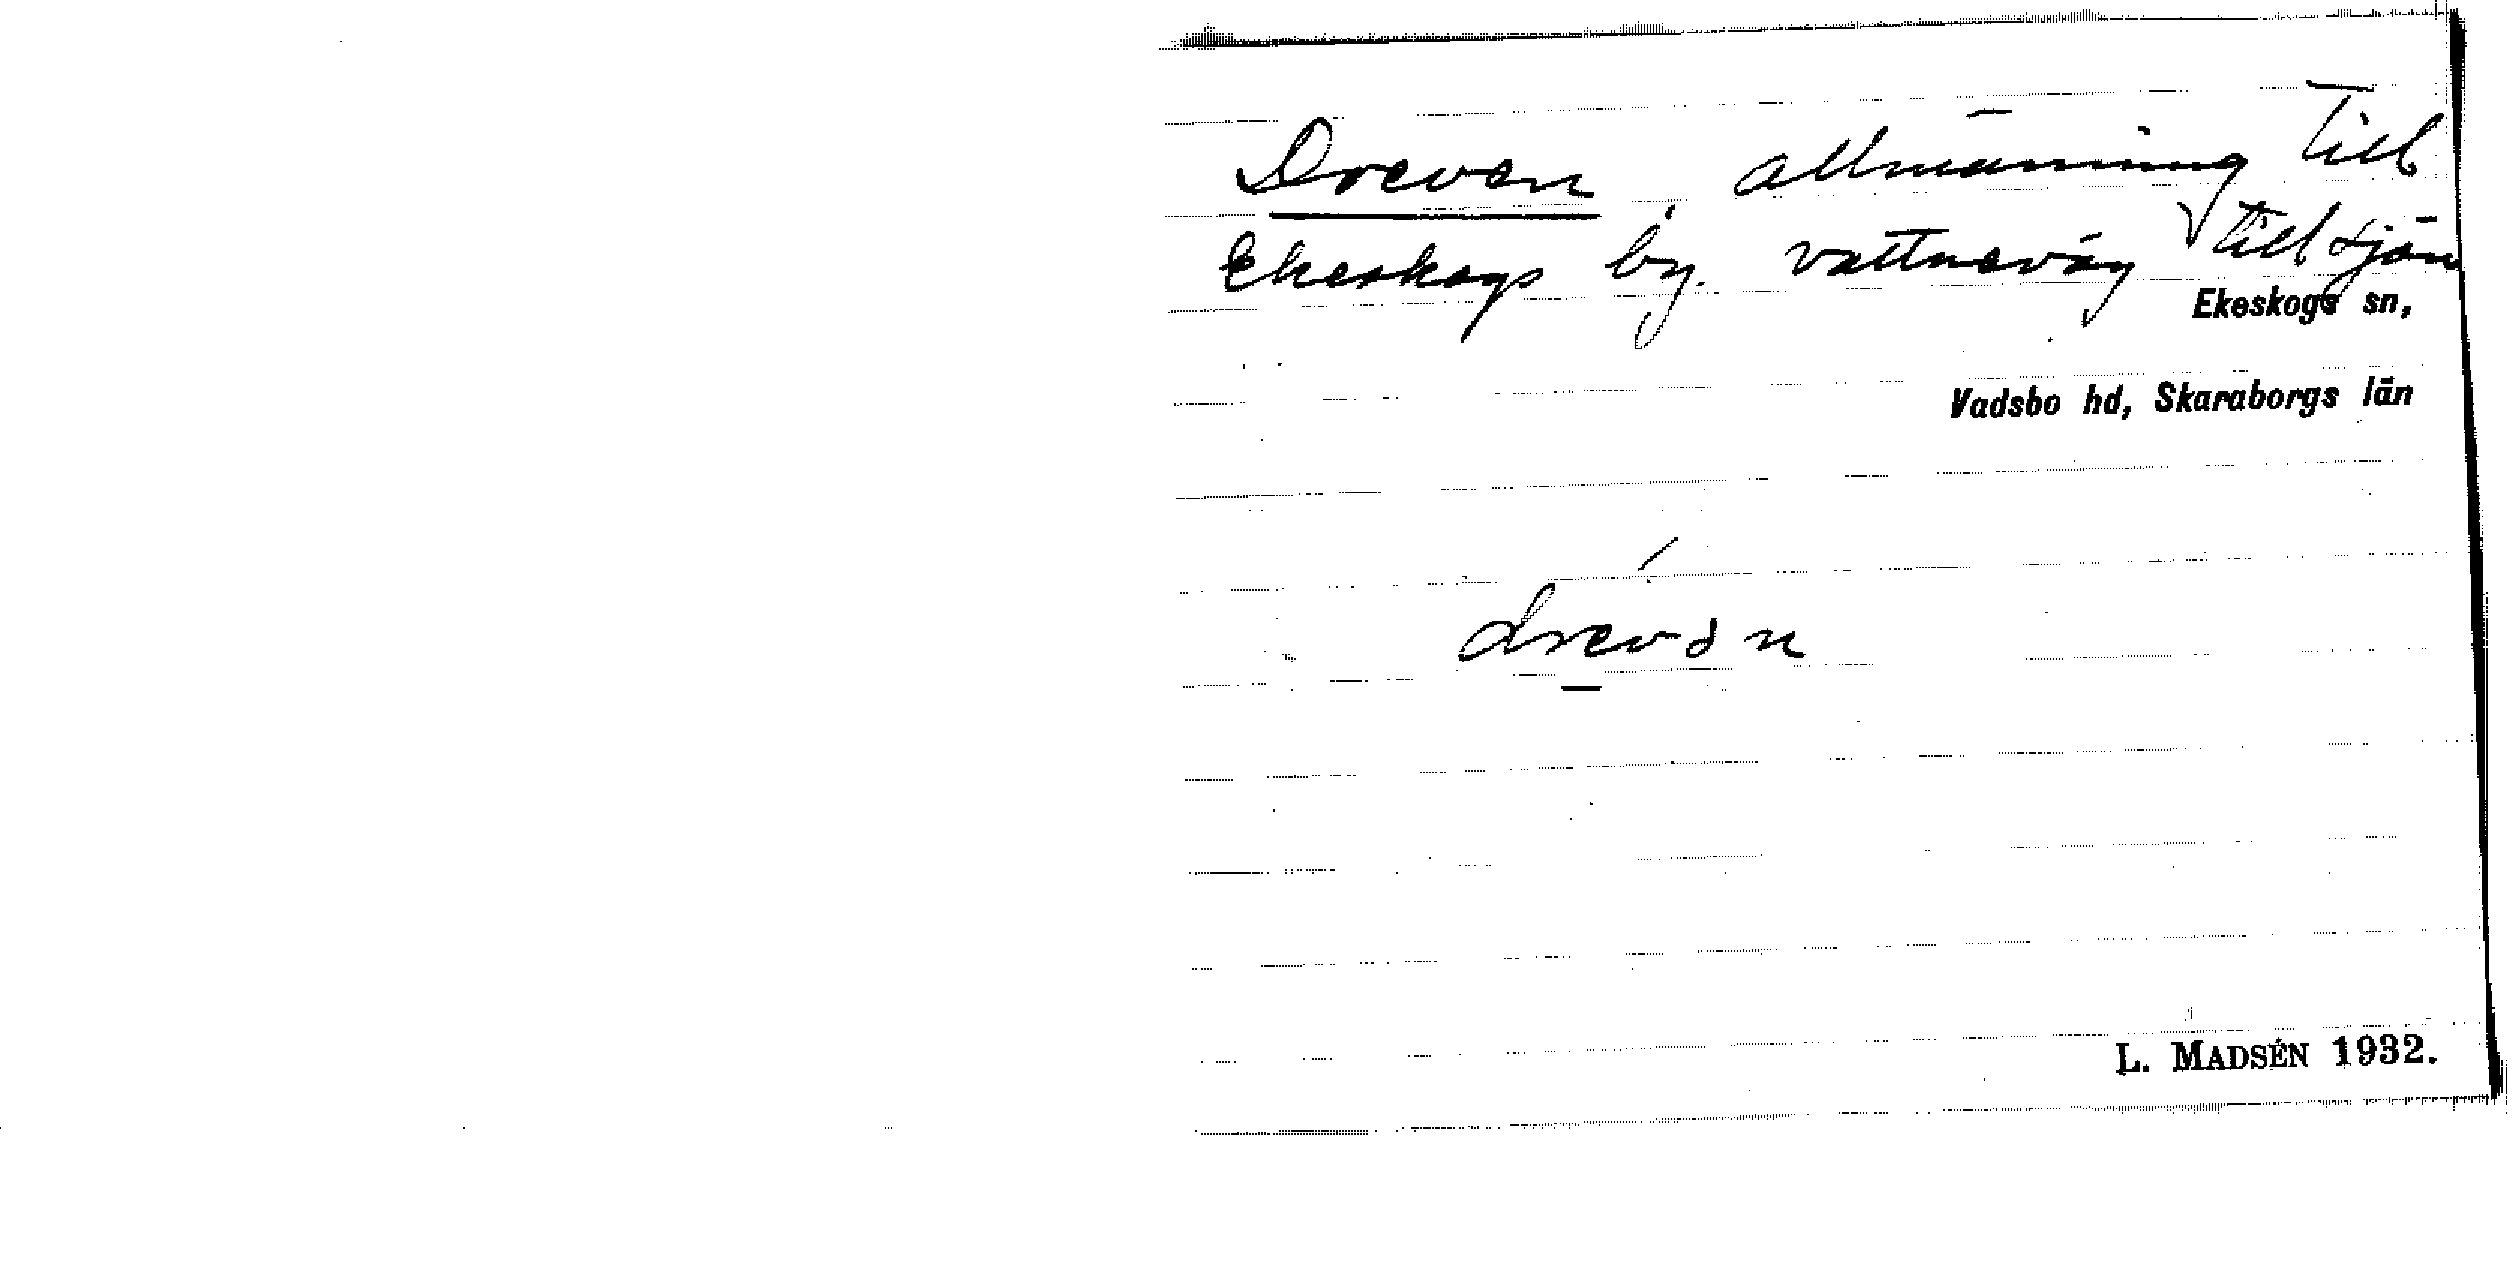 Dreven allmänning till
Ekeskogs by. vattneväg till sjön
Ekeskogs sn,
Vadsbo hd, Skaraborgs län
L. MADSÉN 1932.